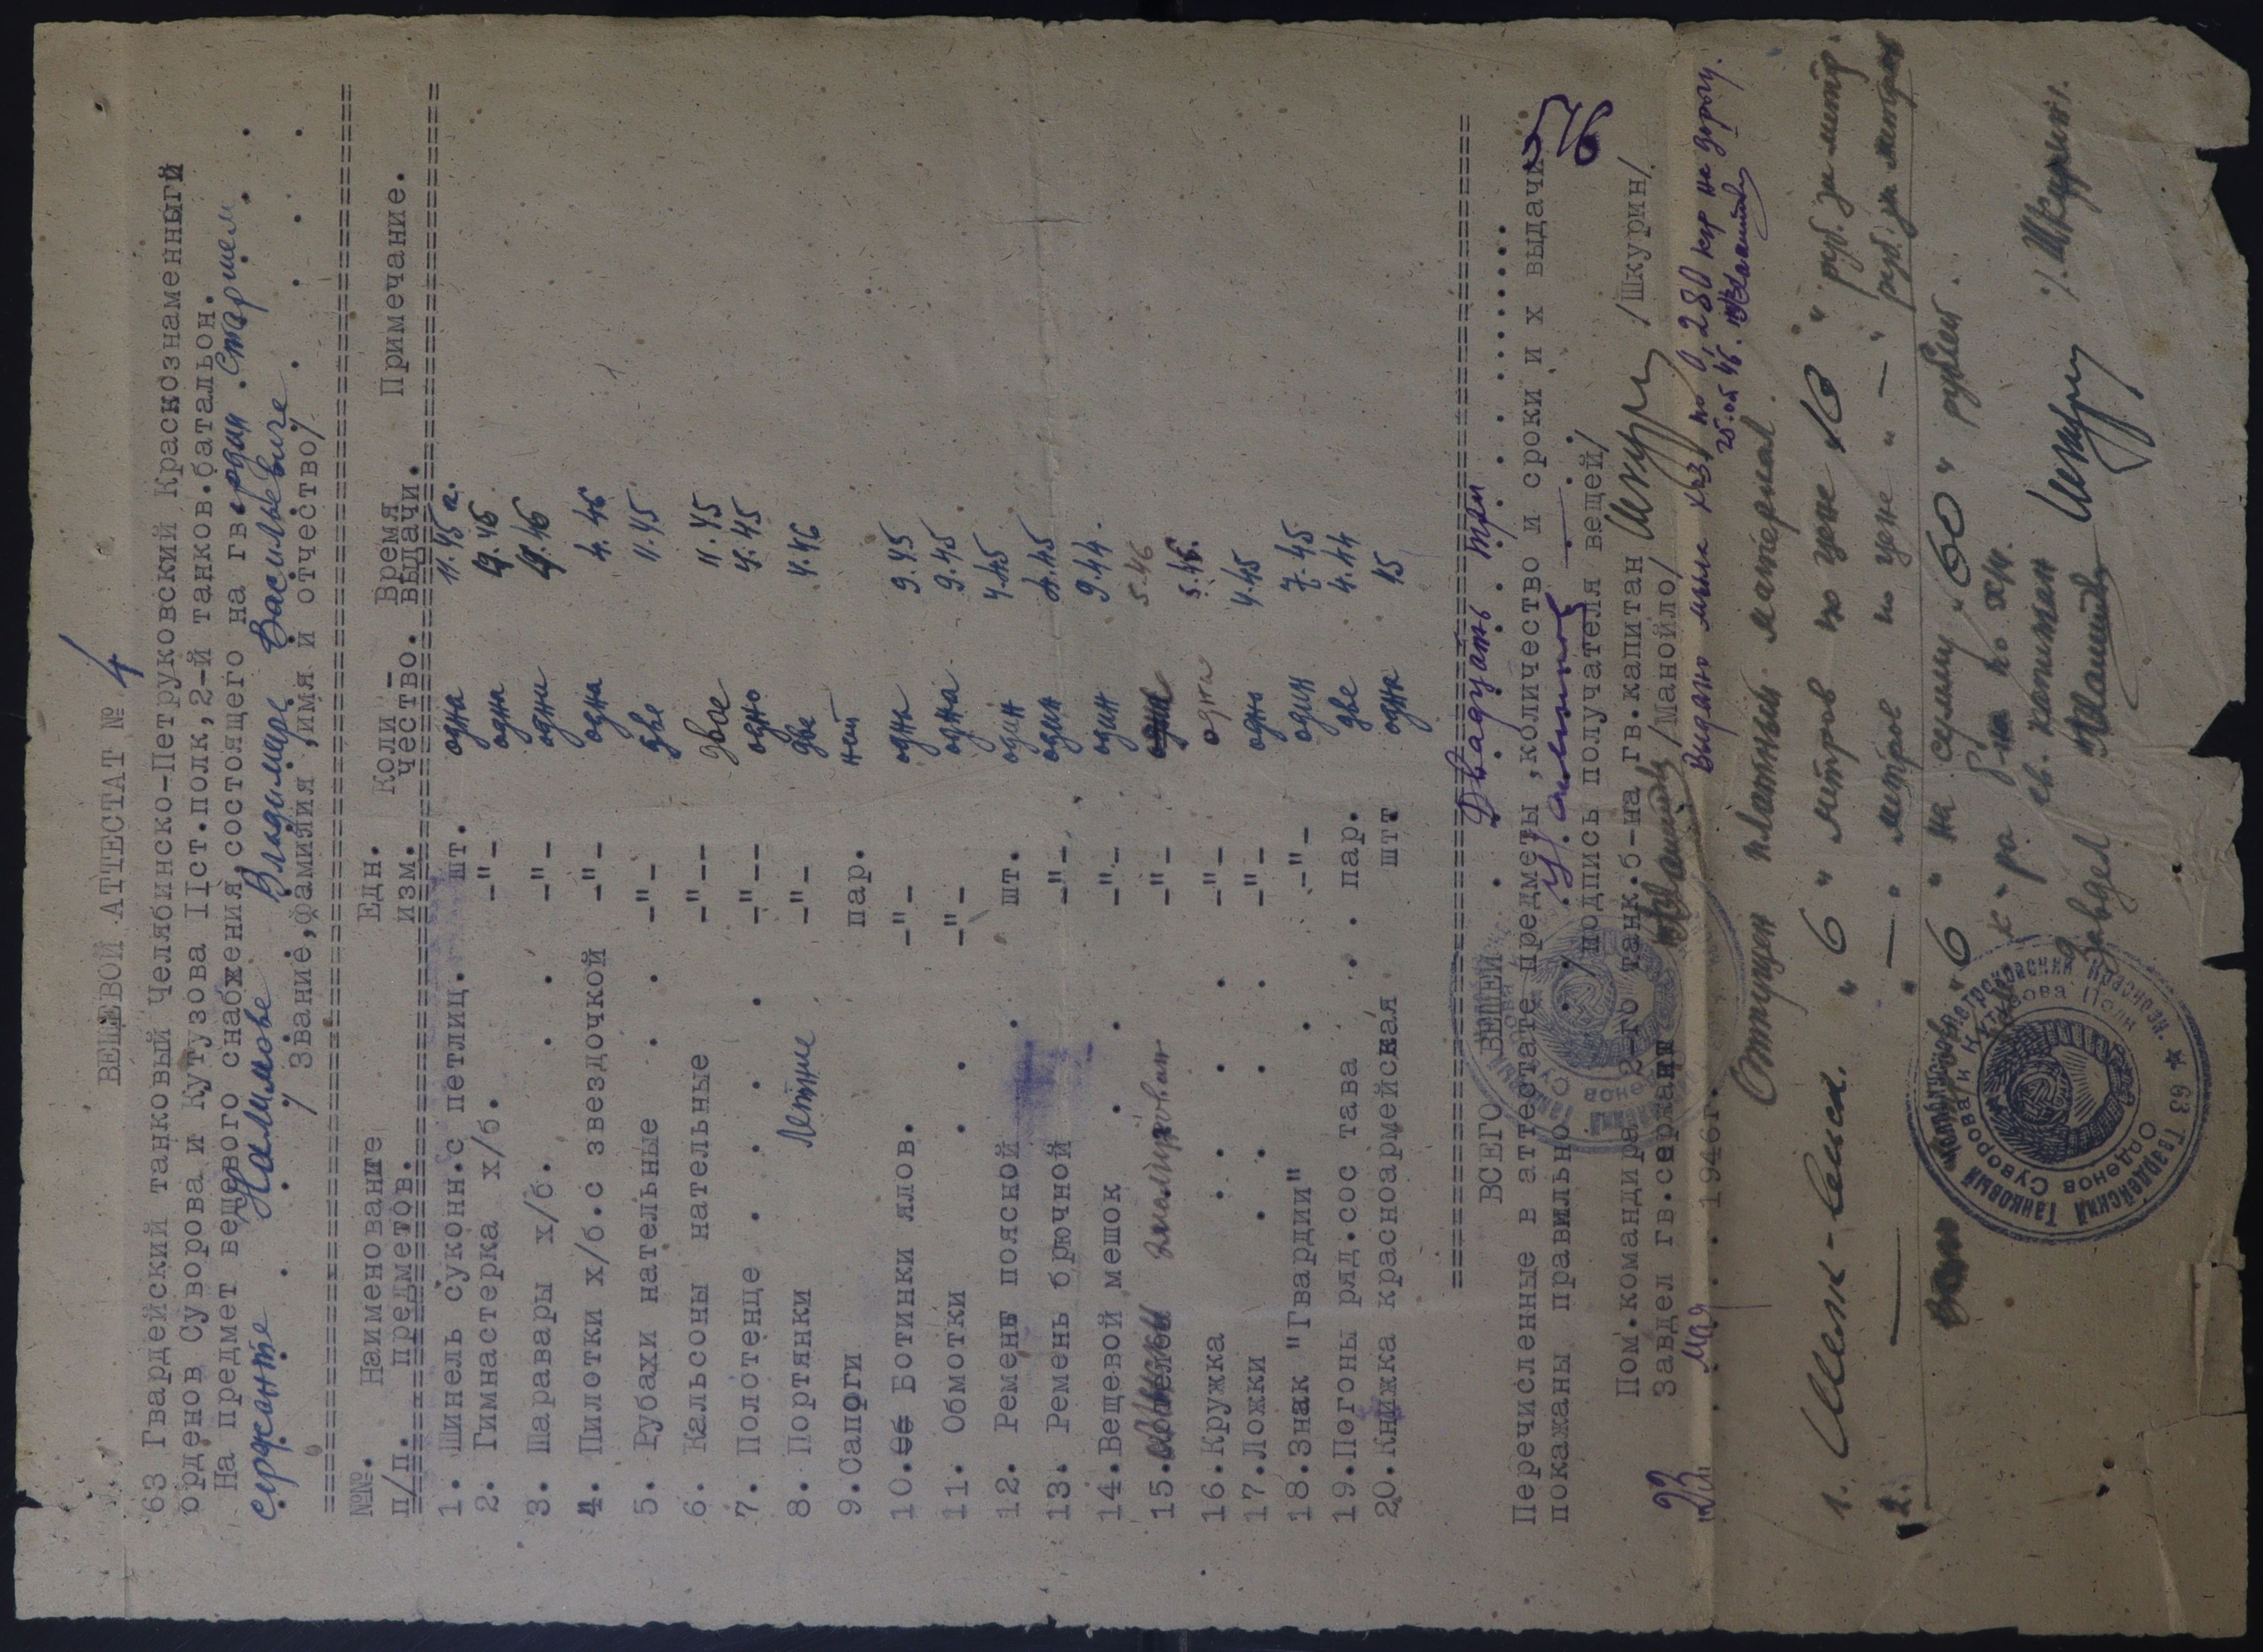 ВЕЩЕВОЙ АТТЕСТАТ № 4
63 Гвардейский танковый Челябинско-Петруковский Краснознаменный
орденов Суворова и Кутузова IIст.полк,2-й танков.батальон.
На предмет вещевого снабжения,состоящего на гвардии старшем
сержанте Налимове Владимире Васильевиче
/ Звание,фамилия,имя и отчество/
№№. Наименование Едн. Коли- Время Примечание.
п/п. предметов. изм. чество. выдачи.
1. Шинель суконн.с петлиц. шт. одна 11.45 г.
2. Гимнастерка х/б. -"- одна 4.46
3. Шаравары х/б. -"- одни 4.46
4. Пилотки х/б.с звездочкой -"- одна 4.46
5. Рубахи нательные -"- две 11.45
6. Кальсоны нательные -"-- двое 11.45
7. Полотенце -"-- одно 4.45
8. Портянки летние -"- две 4.46
9.Сапоги пар. нет
10. Ботинки ялов. -"- одне 9.45
11. Обмотки -"- одна 9.45
12. Ремень поясной шт. один 4.45
13. Ремень брючной -"- один 4.45
14.Вещевой мешок -"- один 9.44.
15. -"- 5.46
16.Кружка -"- одна 5.46.
17.Ложки -"- одна 4.45
18.Знак "Гвардии" -"- один 7.45
19.Погоны ряд.сос тава пар. две 4.44
20.Книжка красноармейская шт одна 45
ВСЕГО ВЕЩЕЙ Двадцать три
Перечисленные в аттестате предметы,количество и сроки и х выдачи
покажаны правильно
/подпись получателя вещей/
Пом.командира 2-го танк.б-на,гв.капитан /Шкурин/
Завдел гв.сержант /Манойло/
"23" Мая 1946г.
Выдано мыла хоз. по 0,280 кгр на дорогу.
25.05.46.
Отпущен платный материал.
1. "6" метров по цене "10" руб. за метр.
2. "—" метров по цене "—" руб. за метров
"6" на сумму "60" рублей.
б-на по хч.
гв. капитан /Шкурин/.
Завдел
63 Гвардейский Танковый Челябинско-Петраковский Краснозн.
Орденов Суворова и Кутузова Полк